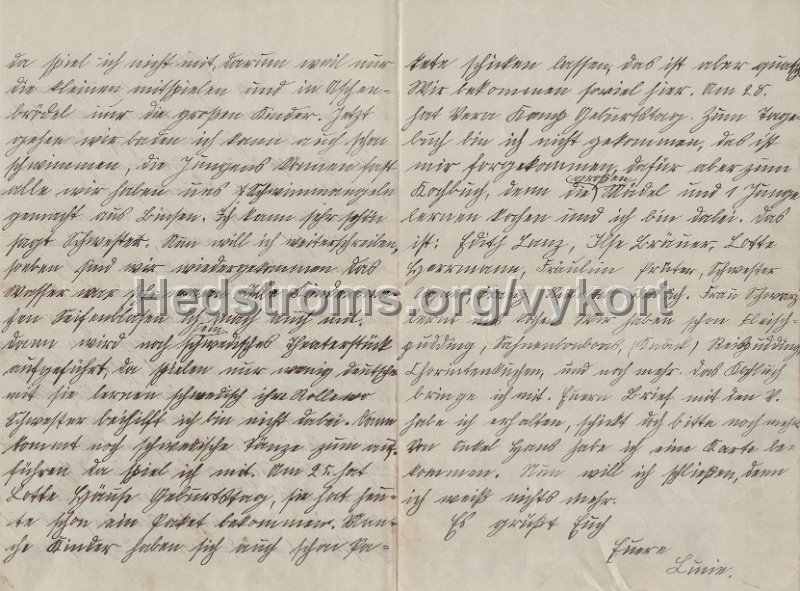 da spiel ich nicht mit, darum weil nur
die kleinen mitspielen und in Aschen-
brödel nur die großen Kinder. Jetzt
gehen wir baden ich kann auch schon
schwimmen, die Jungens können fast
alle wir haben uns Schwimmangeln
gemacht aus Binsen. Ich kann sehr
sagt Schwester. Nun will ich weiterschreiben,
soeben sind wir wiedergekommen das
Wasser war Alle Kinder ma-
chen Seifenblasen ich mach auch mit.
Dann wird noch ein schwedisches Theaterstück
aufgeführt, da spielen nur wenig deutsche
mit sie lernen schwedisch ihre Rolle wo
Schwester beihilft ich bin nicht dabei. Dann
kommt noch schwedische Tänze zum auf-
führen da spiel ich mit. Am 25. hat
Lotte Hänse Geburtstag, sie hat heu-
te schon ein Paket bekommen. Man-
che Kinder haben sich auch schon Pa-
kete schicken lassen, das ist aber quatsch
Wir bekommen soviel hier. Am 28.
hat Vera Kamp Geburtstag. Zum Tage-
buch bin ich nicht gekommen, das ist
mir forgekommen, dafür aber zum
Kochbuch, denn die großen Mädel und 1 Junge
lernen kochen und ich bin dabei. Das
ist: Edith Lanz, Ilse Bräuer, Lotte
Herrmann, Fräulein Prüter, Schwester
Frau Schwarz
lernt uns kochen Wir haben schon Fleisch-
pudding, Sahnenbonbons, (Snask) Reispudding
und noch mehr. Das Kochbuch
bringe ich mit. Euern Brief mit den
habe ich erhalten, schickt doch bitte noch mehr
Von Onkel Hans habe ich eine Karte be-
kommen. Nun will ich schließen, denn
ich weiß nichts mehr.
Es grüßt Euch
Euere
Luzie.
Hedstroms.org/vykort